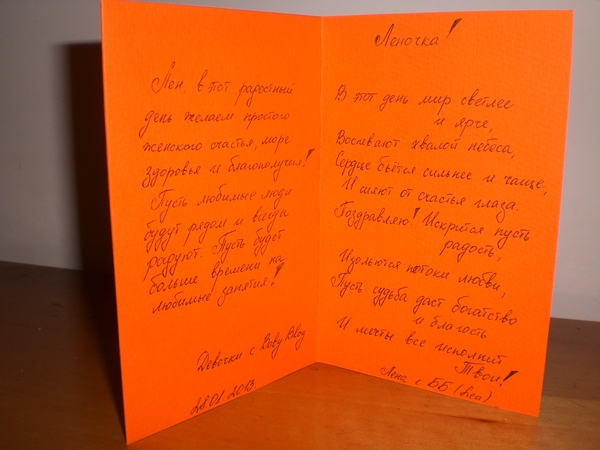 Лен, в тот радостный
день желаем простого
женского счастья, море
здоровья и благополучия!
Пусть любимые люди
будут рядом и всегда
радуют. Пусть будет
больше времени на
любимые занятия!
Девочки с Baby Blog
28.01.2013.
Леночка!
В тот день мир светлее
и ярче,
Воспевают хвалой небеса,
Сердце бьётся сильнее и чаще,
И сияют от счастья глаза.
Поздравляю! Искрится пусть
радость,
Изольются потоки любви,
Пусть судьба даст богатство
и благость
И мечты все исполнит
Твои!
Лена с ББ